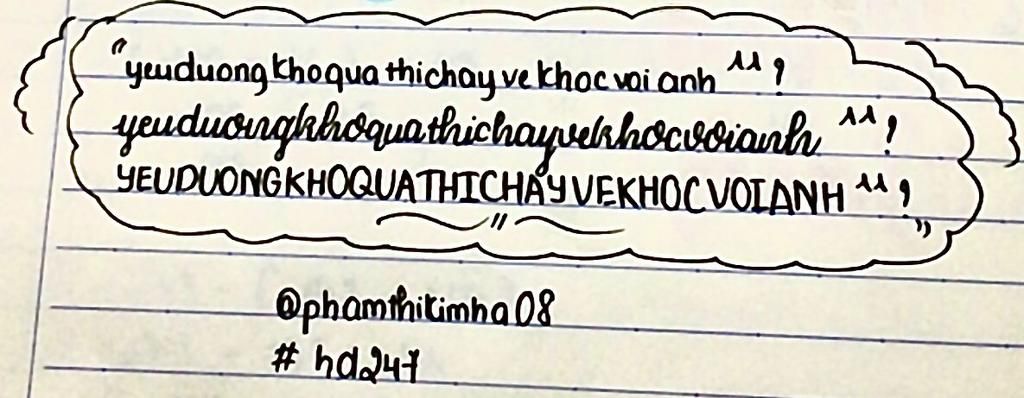 "yeuduongkhoquathichayvekhocvoianh ^^ !
yeuduongkhoquathichayvekhocvoianh ^^ !
YEUDUONGKHOQUATHICHAYVEKHOCVOIANH ^^ !
"
@phamthikimha08
# hd247